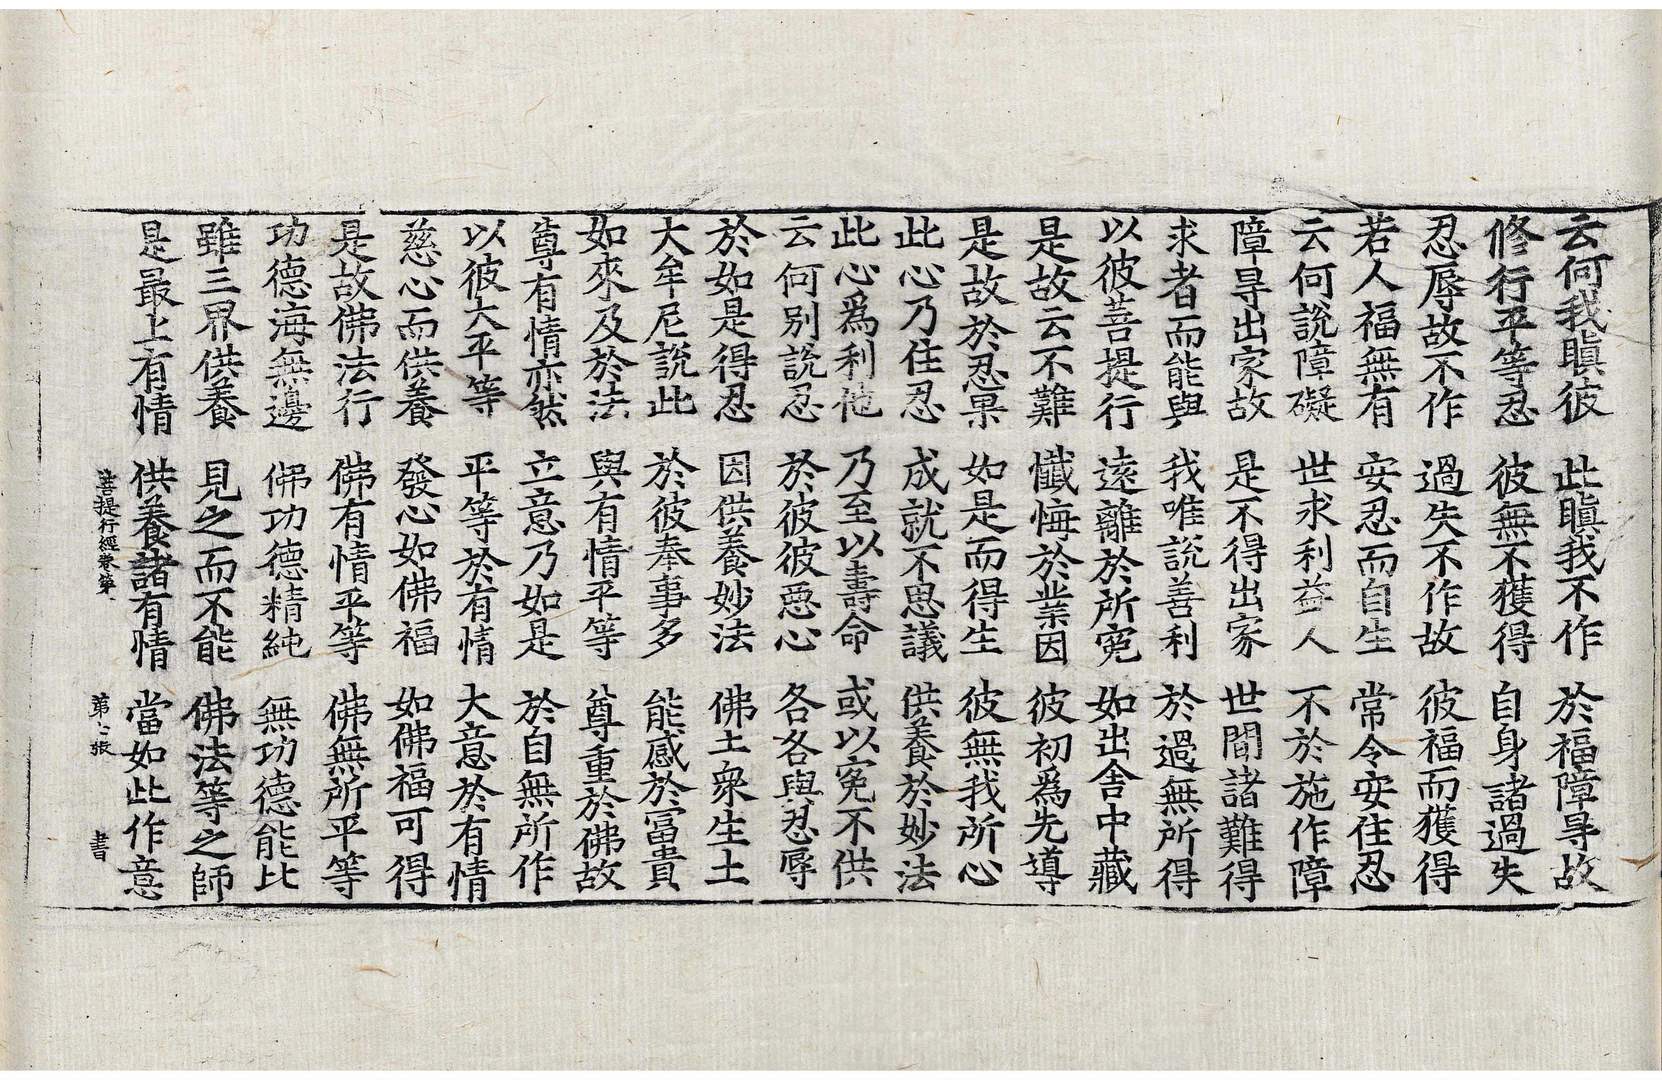 云何我瞋彼 此瞋我不作 於福障㝵故
修行平等忍 彼無不獲得 自身諸過失
忍辱故不作 過失不作故 彼福而獲得
若人福無有 安忍而自生 常令安住忍
云何說障礙 世求利益人 不於施作障
障㝵出家故 是不得出家 世間諸難得
求者而能與 我唯說善利 於過無所得
以彼菩提行 遠離於所寃 如出舍中藏
是故云不難 懺悔於業因 彼初爲先導
是故於忍果 如是而得生 彼無我所心
此心乃住忍 成就不思議 供養於妙法
此心爲利他 乃至以壽命 或以寃不供
云何別說忍 於彼彼惡心 各各與忍辱
於如是得忍 因供養妙法 佛土衆生土
大牟尼說此 於彼奉事多 能感於富貴
如來及於法 與有情平等 尊重於佛故
尊有情亦然 立意乃如是 於自無所作
以彼大平等 平等於有情 大意於有情
慈心而供養 發心如佛福 如佛福可得
是故佛法行 佛有情平等 佛無所平等
功德海無邊 佛功德精純 無功德能比
雖三界供養 見之而不能 佛法等之師
是最上有情 供養諸有情 當如此作意
菩提行經卷第 第七張 書